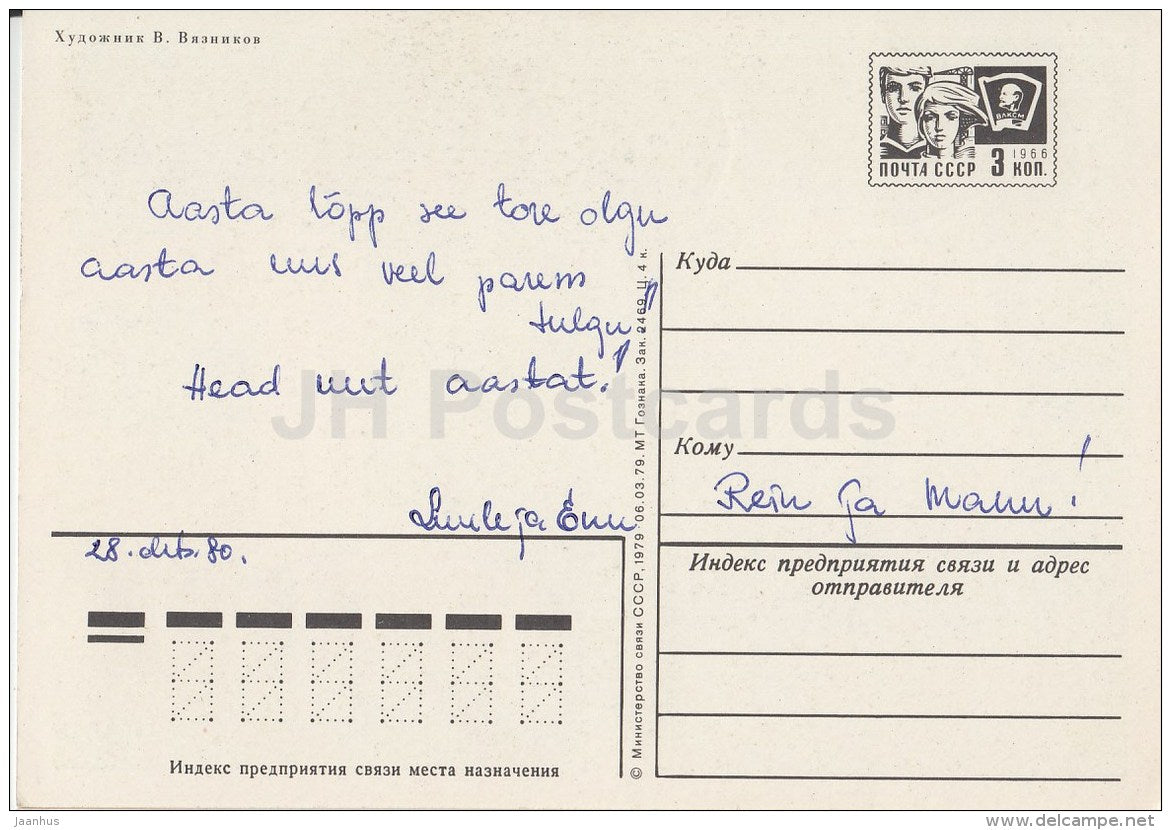 Художник В. Вязников
ВЛКСМ
1966
ПОЧТА СССР 3 КОП.
Aasta lõpp see tore olgu
aasta uus veel parem
tulgu!
Head uut aastat!
ja Enn
28. dets. 80.
Куда
Кому
Rein ja Mann!
Индекс предприятия связи и адрес
отправителя
Индекс предприятия связи места назначения
© Министерство связи СССР, 1979. 06.03.79. МТ Гознака. Зак. 2469. Ц. 4 к.
JH Postcards
Jaanhus
www.delcampe.net